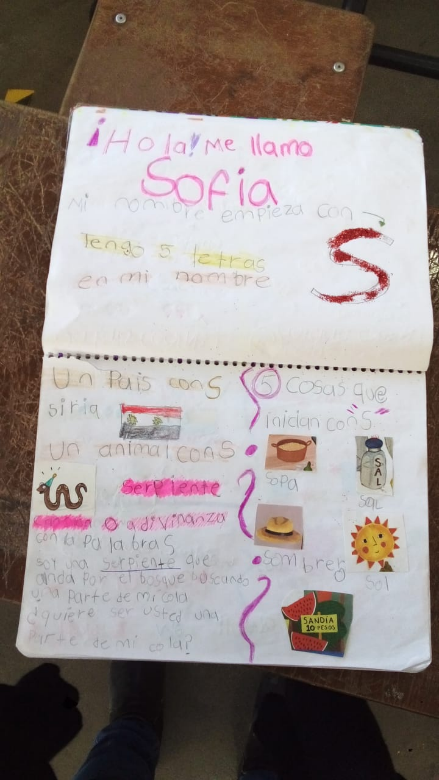 ¡Hola! Me llamo
Sofia
Mi nombre empieza con
S
Tengo 5 letras
en mi nombre
Un Pais con S
siria
Un animal con S
serpiente
O adivinanza
con la palabras
soy una serpiente que
anda por el bosque buscando
una parte de mi cola
¿quiere ser usted una
parte de mi cola?
5 Cosas que
inician con "S"
sopa
SAL
sal
sombrero
sol
SANDÍA
10 PESOS